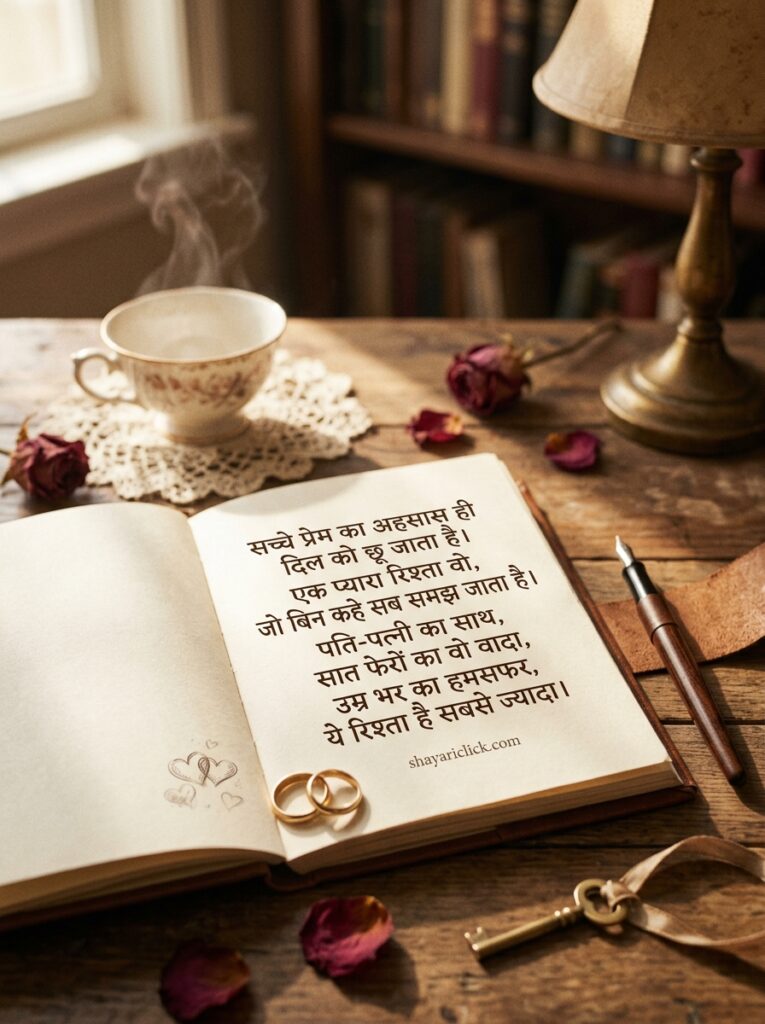 सच्चे प्रेम का अहसास ही
दिल को छू जाता है।
एक प्यारा रिश्ता वो,
जो बिन कहे सब समझ जाता है।
पति-पत्नी का साथ,
सात फेरों का वो वादा,
उम्र भर का हमसफर,
ये रिश्ता है सबसे ज्यादा।
shayariclick.com